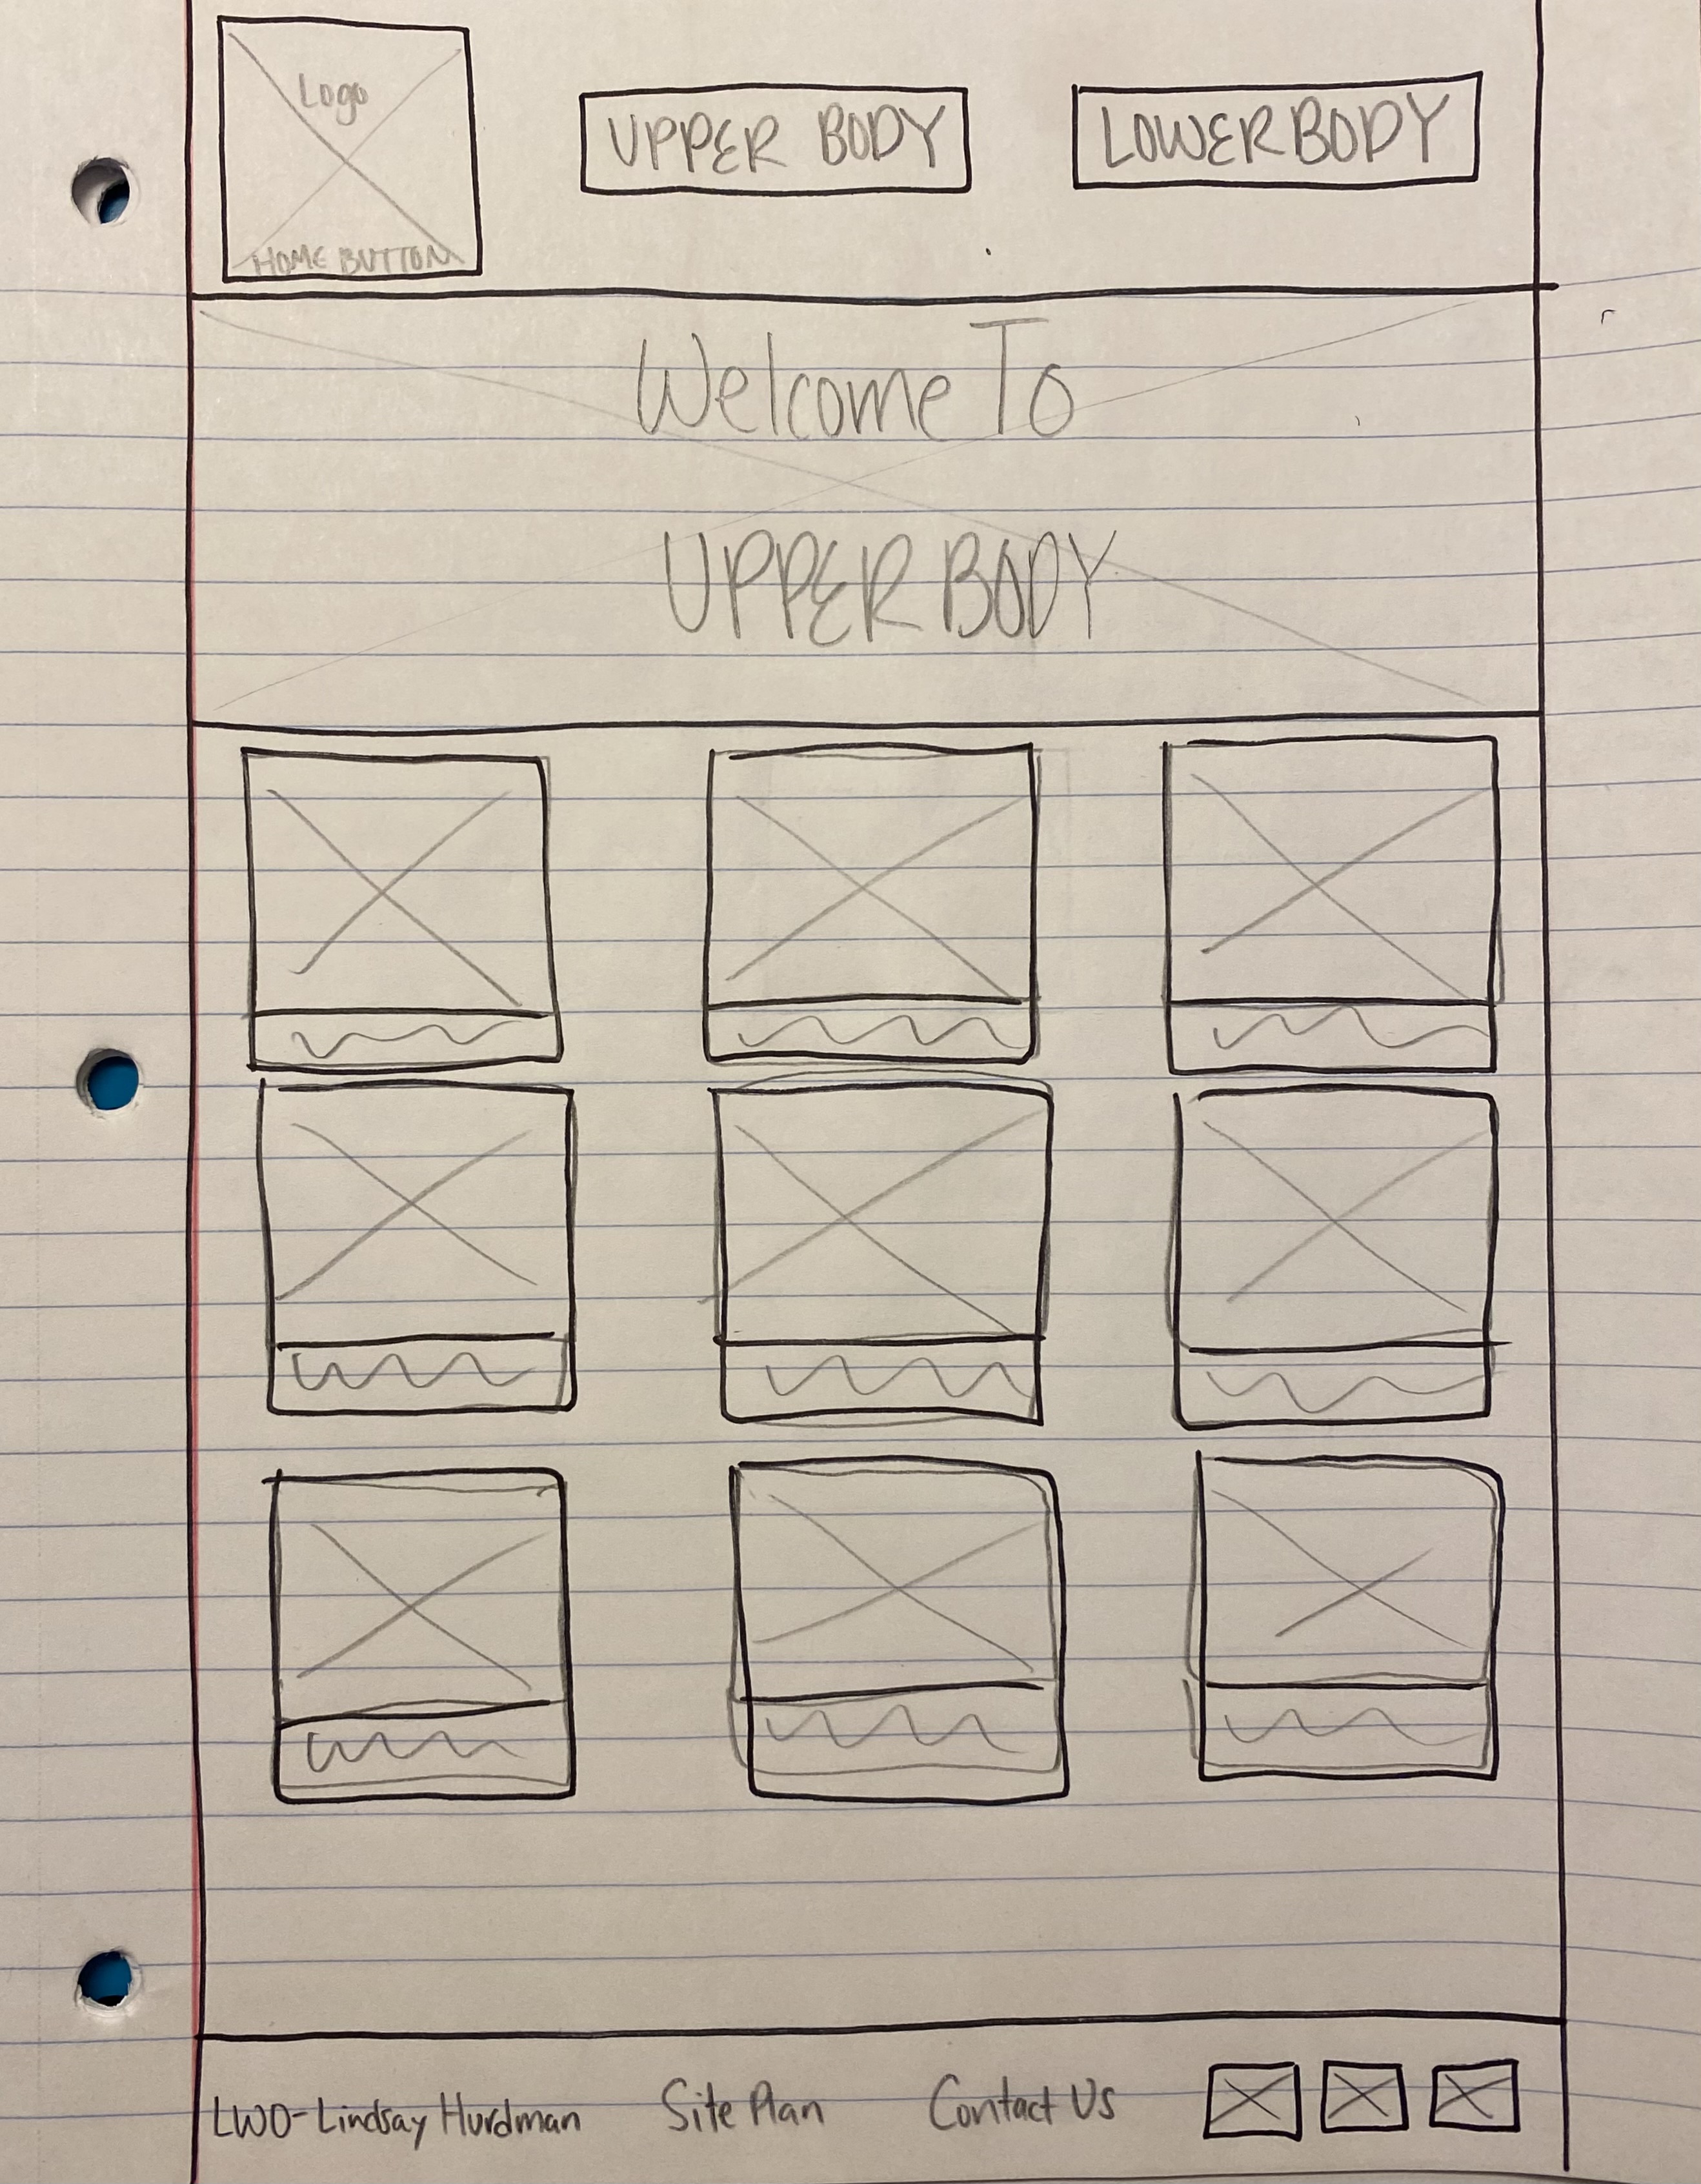 Logo
HOME BUTTON
UPPER BODY
LOWER BODY
Welcome To
UPPER BODY
LWO-Lindsay Hurdman
Site Plan
Contact Us